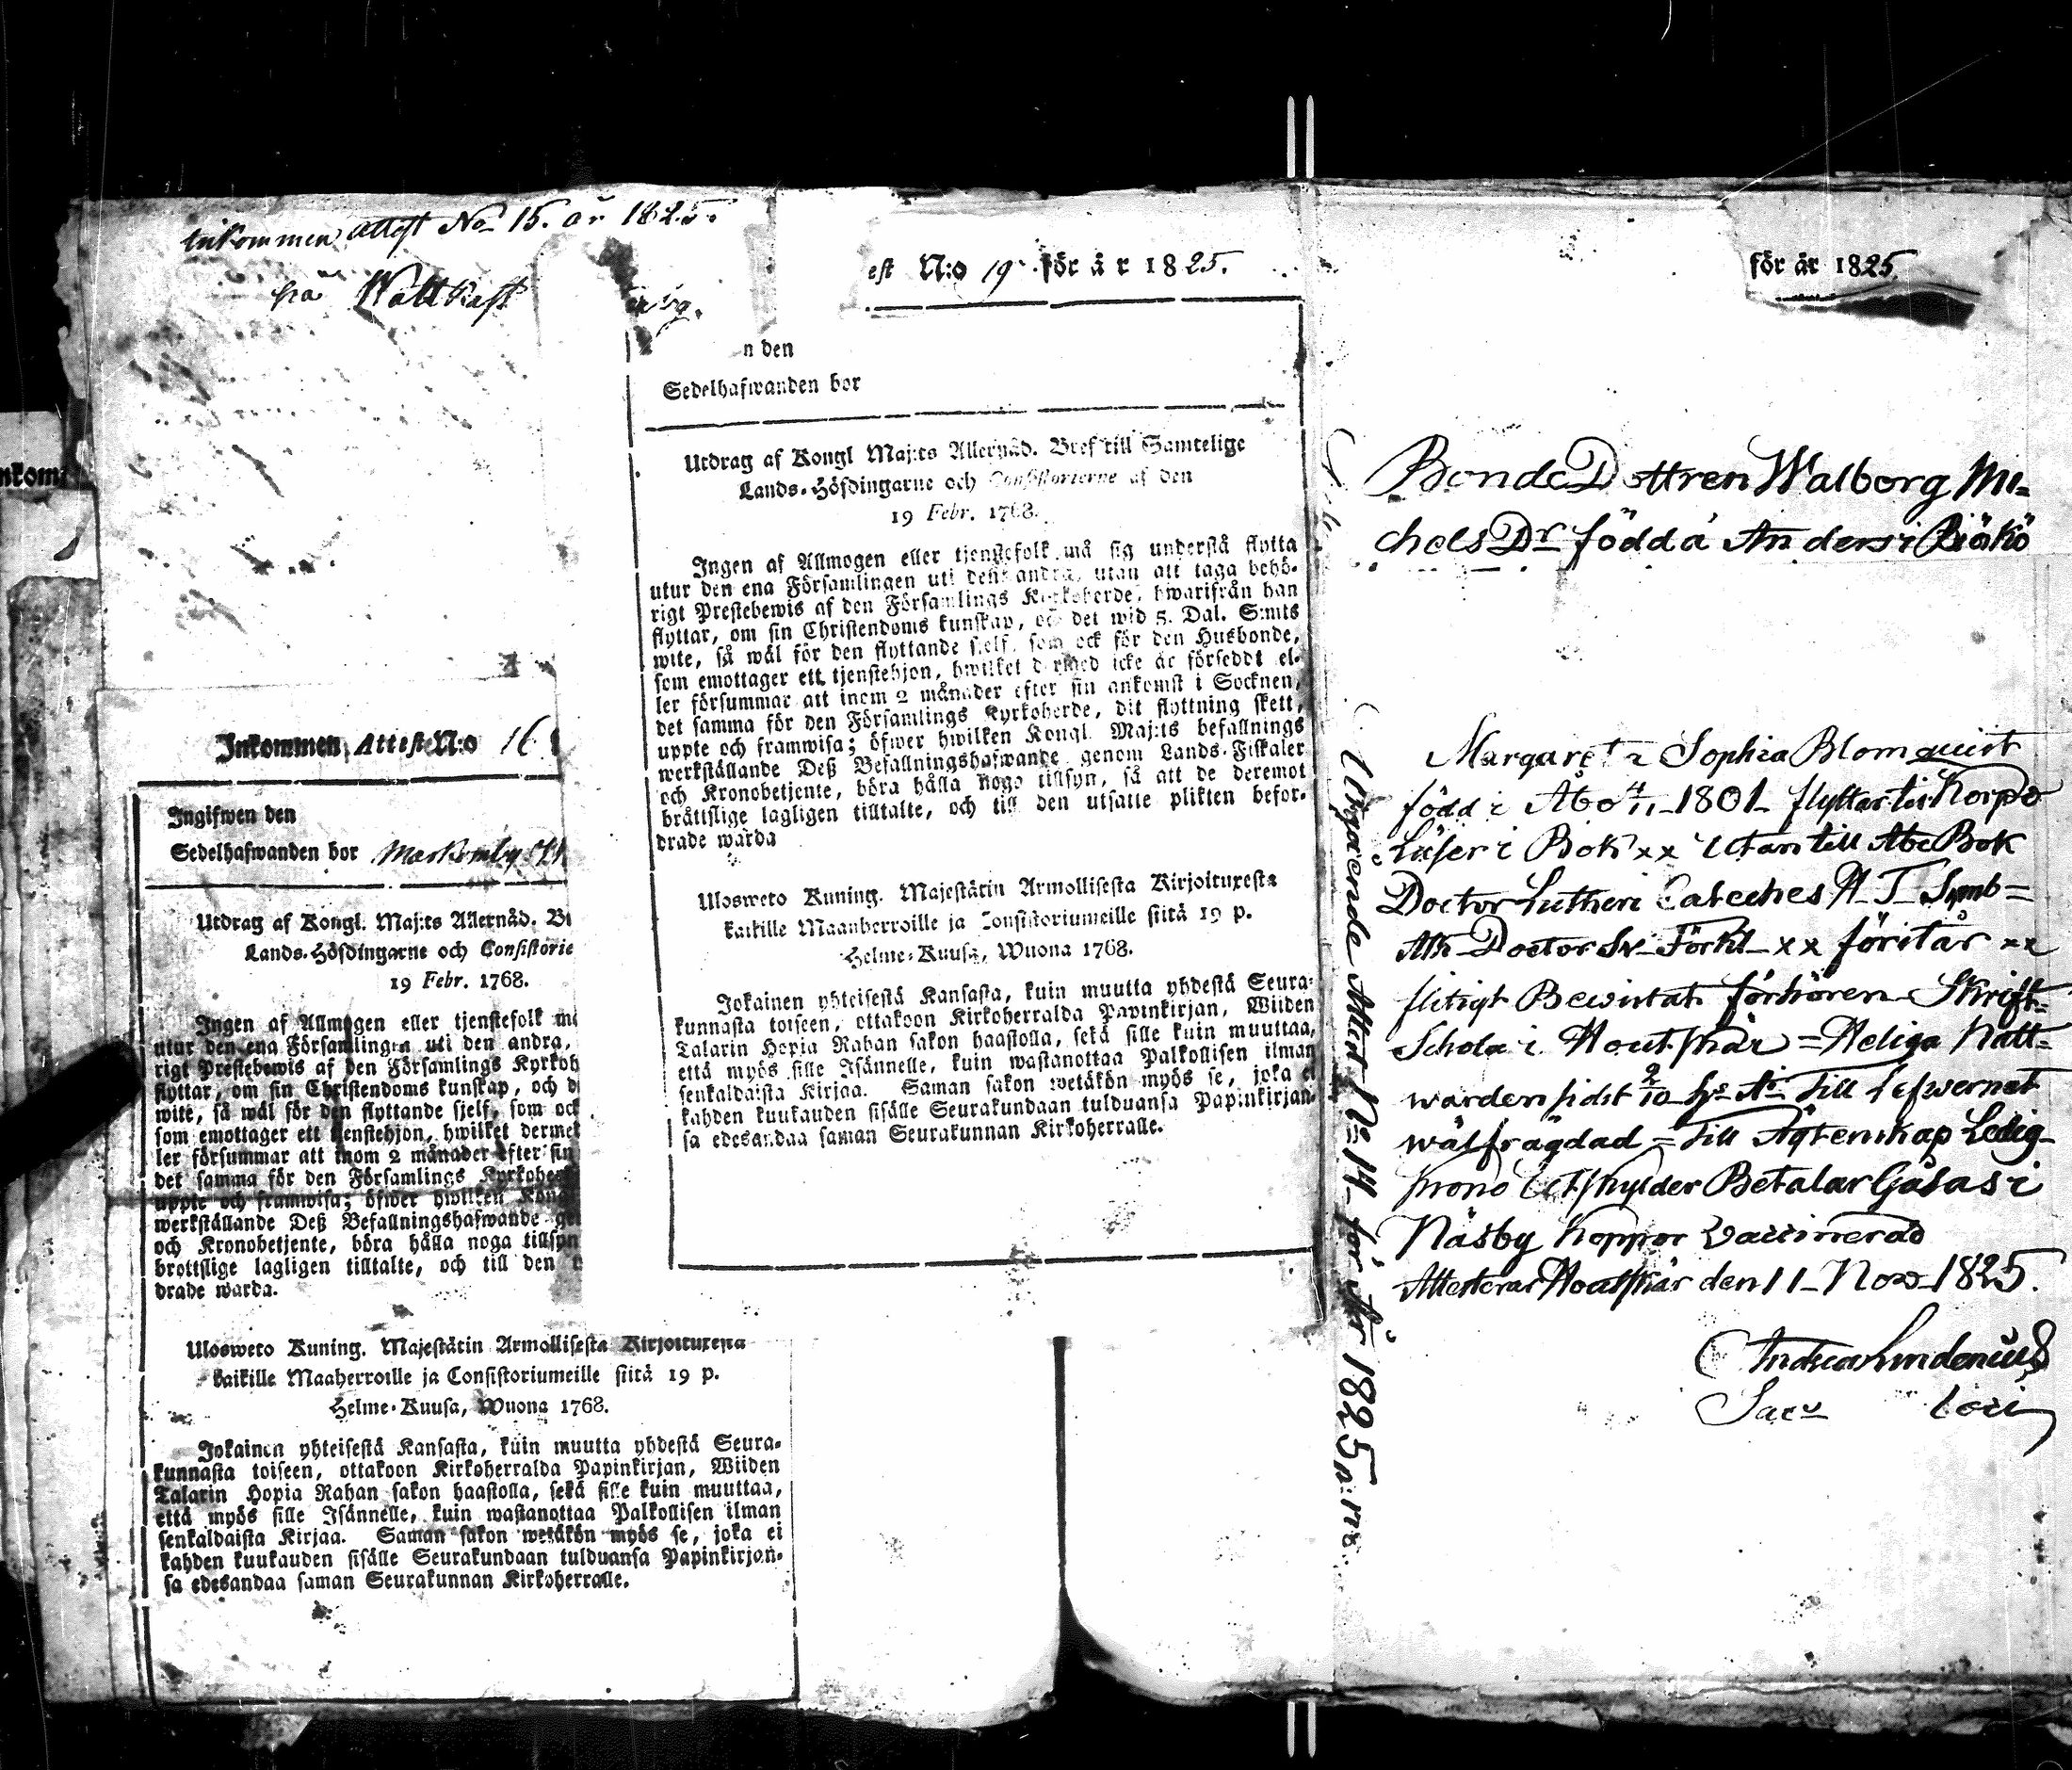 inkommen attest No 15. år 1825.
från
nkom
Inkommen Attest N:o 16
Ingifwen den
Sedelhafwanden bor
Utdrag af Kongl. Maj:ts Allernåd.
Lands-Höfdingarne och Consistorie
19 Febr. 1768.
Ingen af Allmogen eller tjenstefolk
utur den ena Församlingen uti den andra,
rigt Prestebewis af den Församlings
flyttar, om sin Christendoms kunskap, och
wite, så wäl för den flyttande sjelf, som ock
som emottager ett tjenstehjon, hwilket
ler försummar att inom 2 månader efter sin
det samma för den Församlings
uppte och framwisa; öfwer hwilken
werkställande Deß Befallningshafwande
och Kronobetjente, böra hålla noga tillsyn
brottslige lagligen tilltalte, och till den
drade warda.
Ulosweto Kuning. Majestätin Armollisesta Kirjoituxesta
kaikille Maaherroille ja Consistoriumeille siitä 19 p.
Helme-Kuusa, Wuona 1768.
Jokainen yhteisestä Kansasta, kuin muutta yhdestä Seura-
kunnasta toiseen, ottakoon Kirkoherralda Papinkirjan, Wiiden
Talarin Hopia Rahan sakon haastolla, sekä sille kuin muuttaa,
että myös sille Isännelle, kuin wastanottaa Palkollisen ilman
senkaldaista Kirjaa. Saman sakon wetäkön myös se, joka ei
kahden kuukauden sisälle Seurakundaan tulduansa Papinkirjan-
sa edesandaa saman Seurakunnan Kirkoherralle.
est N:o 19 för år 1825.
n den
Sedelhafwanden bor
Utdrag af Kongl Maj:ts Allernåd. Bref till Samtelige
Lands-Höfdingarne och Consistorierne af den
19 Febr. 1768.
Ingen af Allmogen eller tjenstefolk må sig understå flytta
utur den ena Församlingen uti den andra, utan att taga behö-
rigt Prestebewis af den Församlings Kyrkoherde, hwarifrån han
flyttar, om sin Christendoms kunskap, och det wid 5. Dal. S:mts
wite, så wäl för den flyttande sjelf, som ock för den Husbonde,
som emottager ett tjenstehjon, hwilket dermed icke är försedt el-
ler försummar att inom 2 månader efter sin ankomst i Socknen,
det samma för den Församlings Kyrkoherde, dit flyttning skett,
uppte och framwisa; öfwer hwilken Kongl. Maj:ts befallnings
werkställande Deß Befallningshafwande genom Lands-Fiskaler
och Kronobetjente, böra hålla noga tillsyn, så att de deremot
bråttslige lagligen tilltalte, och till den utsatte plikten befor-
drade warda
Ulosweto Kuning. Majestätin Armollisesta Kirjoituxesta
kaikille Maanherroille ja Consistoriumeille siitä 19 p.
Helme-Kuusa, Wuona 1768.
Jokainen yhteisestä Kansasta, kuin muutta yhdestä Seura-
kunnasta toiseen, ottakoon Kirkoherralda Papinkirjan, Wiiden
Talarin Hopia Rahan sakon haastolla, sekä sille kuin muuttaa,
että myös sille Isännelle, kuin wastanottaa Palkollisen ilman
senkaldaista Kirjaa. Saman sakon wetäkön myös se, joka ei
kahden kuukauden sisälle Seurakundaan tulduansa Papinkirjan-
sa edesandaa saman Seurakunnan Kirkoherralle.
Utgående Attest No 14 för År 1825
för år 1825
BondeDottren Walborg Mi=
chels Dr född å Anders i Biökö
Margareta Sophia Blomquist
född i Åbo 4/11 1801 flyttar till Korpo
Läser i Bok xx Utan till Abc Bok
Doctor Lutheri Cateches H T Symb=
Ath Doctor Sv Förkl xx förstår xx
flitigt Bewistat förhören Skrift-
Schola i Houtskär = Heliga Natt=
warden sidst 2/10 hs Ai Till Lefwernet
wälfrägdad = Till Ägtenskap Ledig
krono Utskylder Betalar Gåsas i
Näsby koppor Vaccinerad
Attesterar Houtskär den 11 Nov 1825.
Andreas Lindenius
Sac loci